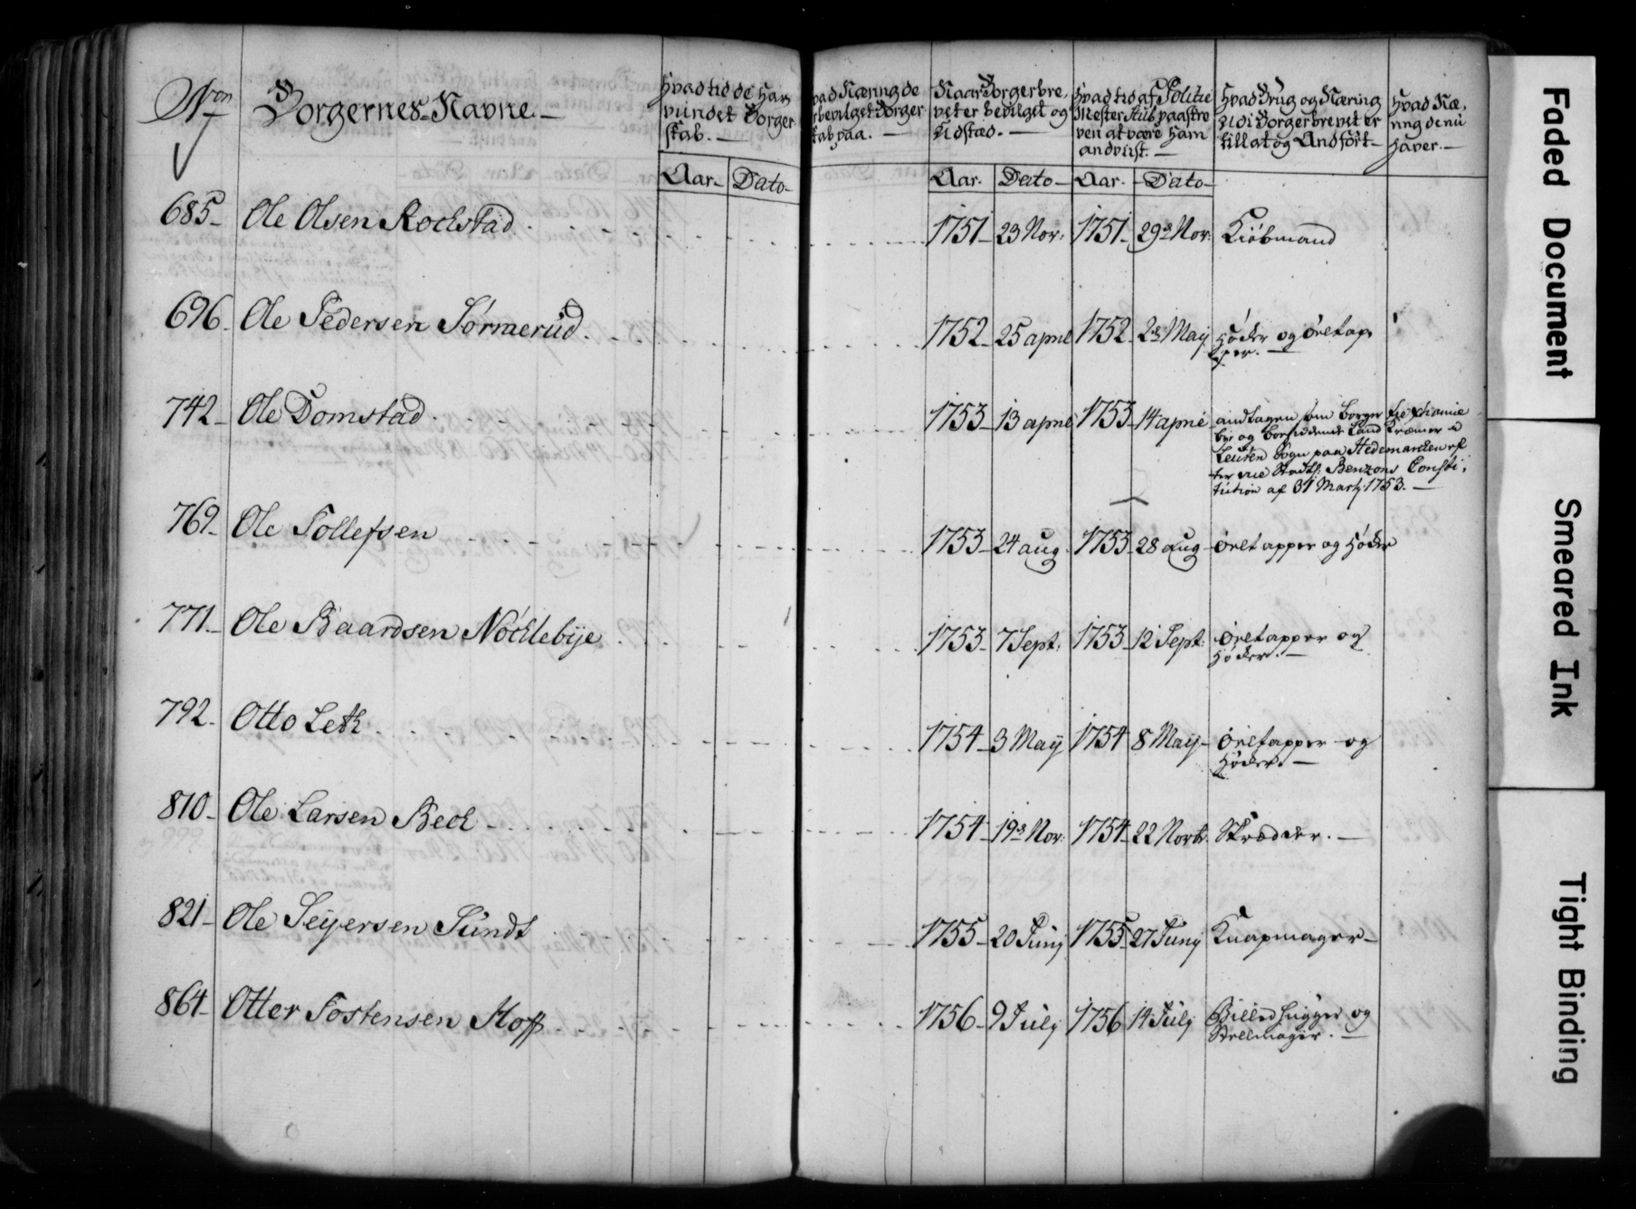 Nro
Borgernes Navne.
Hvad tid de har
vundet Borger
skab.
Aar. Dato
vad Næring de
bevilget Borger
skab paa.
Naar Borgerbre,
vet er bevilget og
Udstæd.
Aar. Dato
Hvad tid af Politie
Mester Skub paaskre
ven at være ham
andvist.
Aar. Dato
Hvad Brug og Næring
Udi Borgerbrevet er
tillat og Andført
Hvad Næ,
ring de nu
haver.
685 Ole Olsen Rochstad 1751 23 Nov. 1751 29d Nov. Kiøbmand
696. Ole Pedersen Sørmerud. 1752 25 april 1752 2d Maij Høcker og Øltap
per.
742 Ole Domstad 1753 13 april 1753 14 april andtagen som Borger
bye og Land Kræmer
Leuten Sogn paa Hedemarken
Benzons Consti,
tution af 31 Martj 1753.
769. Ole Tollefsen 1753 24 aug. 1753 28 aug Øltapper og Høcker
771. Ole Baardsen Nøchlebÿe 1753 7 Sept. 1753 12 Sept. Øltapper og
Høcker.
792. Otto Leth 1754 3 Maÿ 1754 8 Maÿ Øltapper og
Høcker.
810 Ole Larsen Bech 1754 19d Nov. 1754 22 Novbr. Skrædder.
821 Ole Seÿersen Sundt 1755 20 Junj 1755 27 Junj Knapmager
864 Otter Tostensen Hoff 1756 9 Julj 1756 14 Julj Billedhugger og
Stellmager.
Faded Document
Smeared Ink
Tight Binding